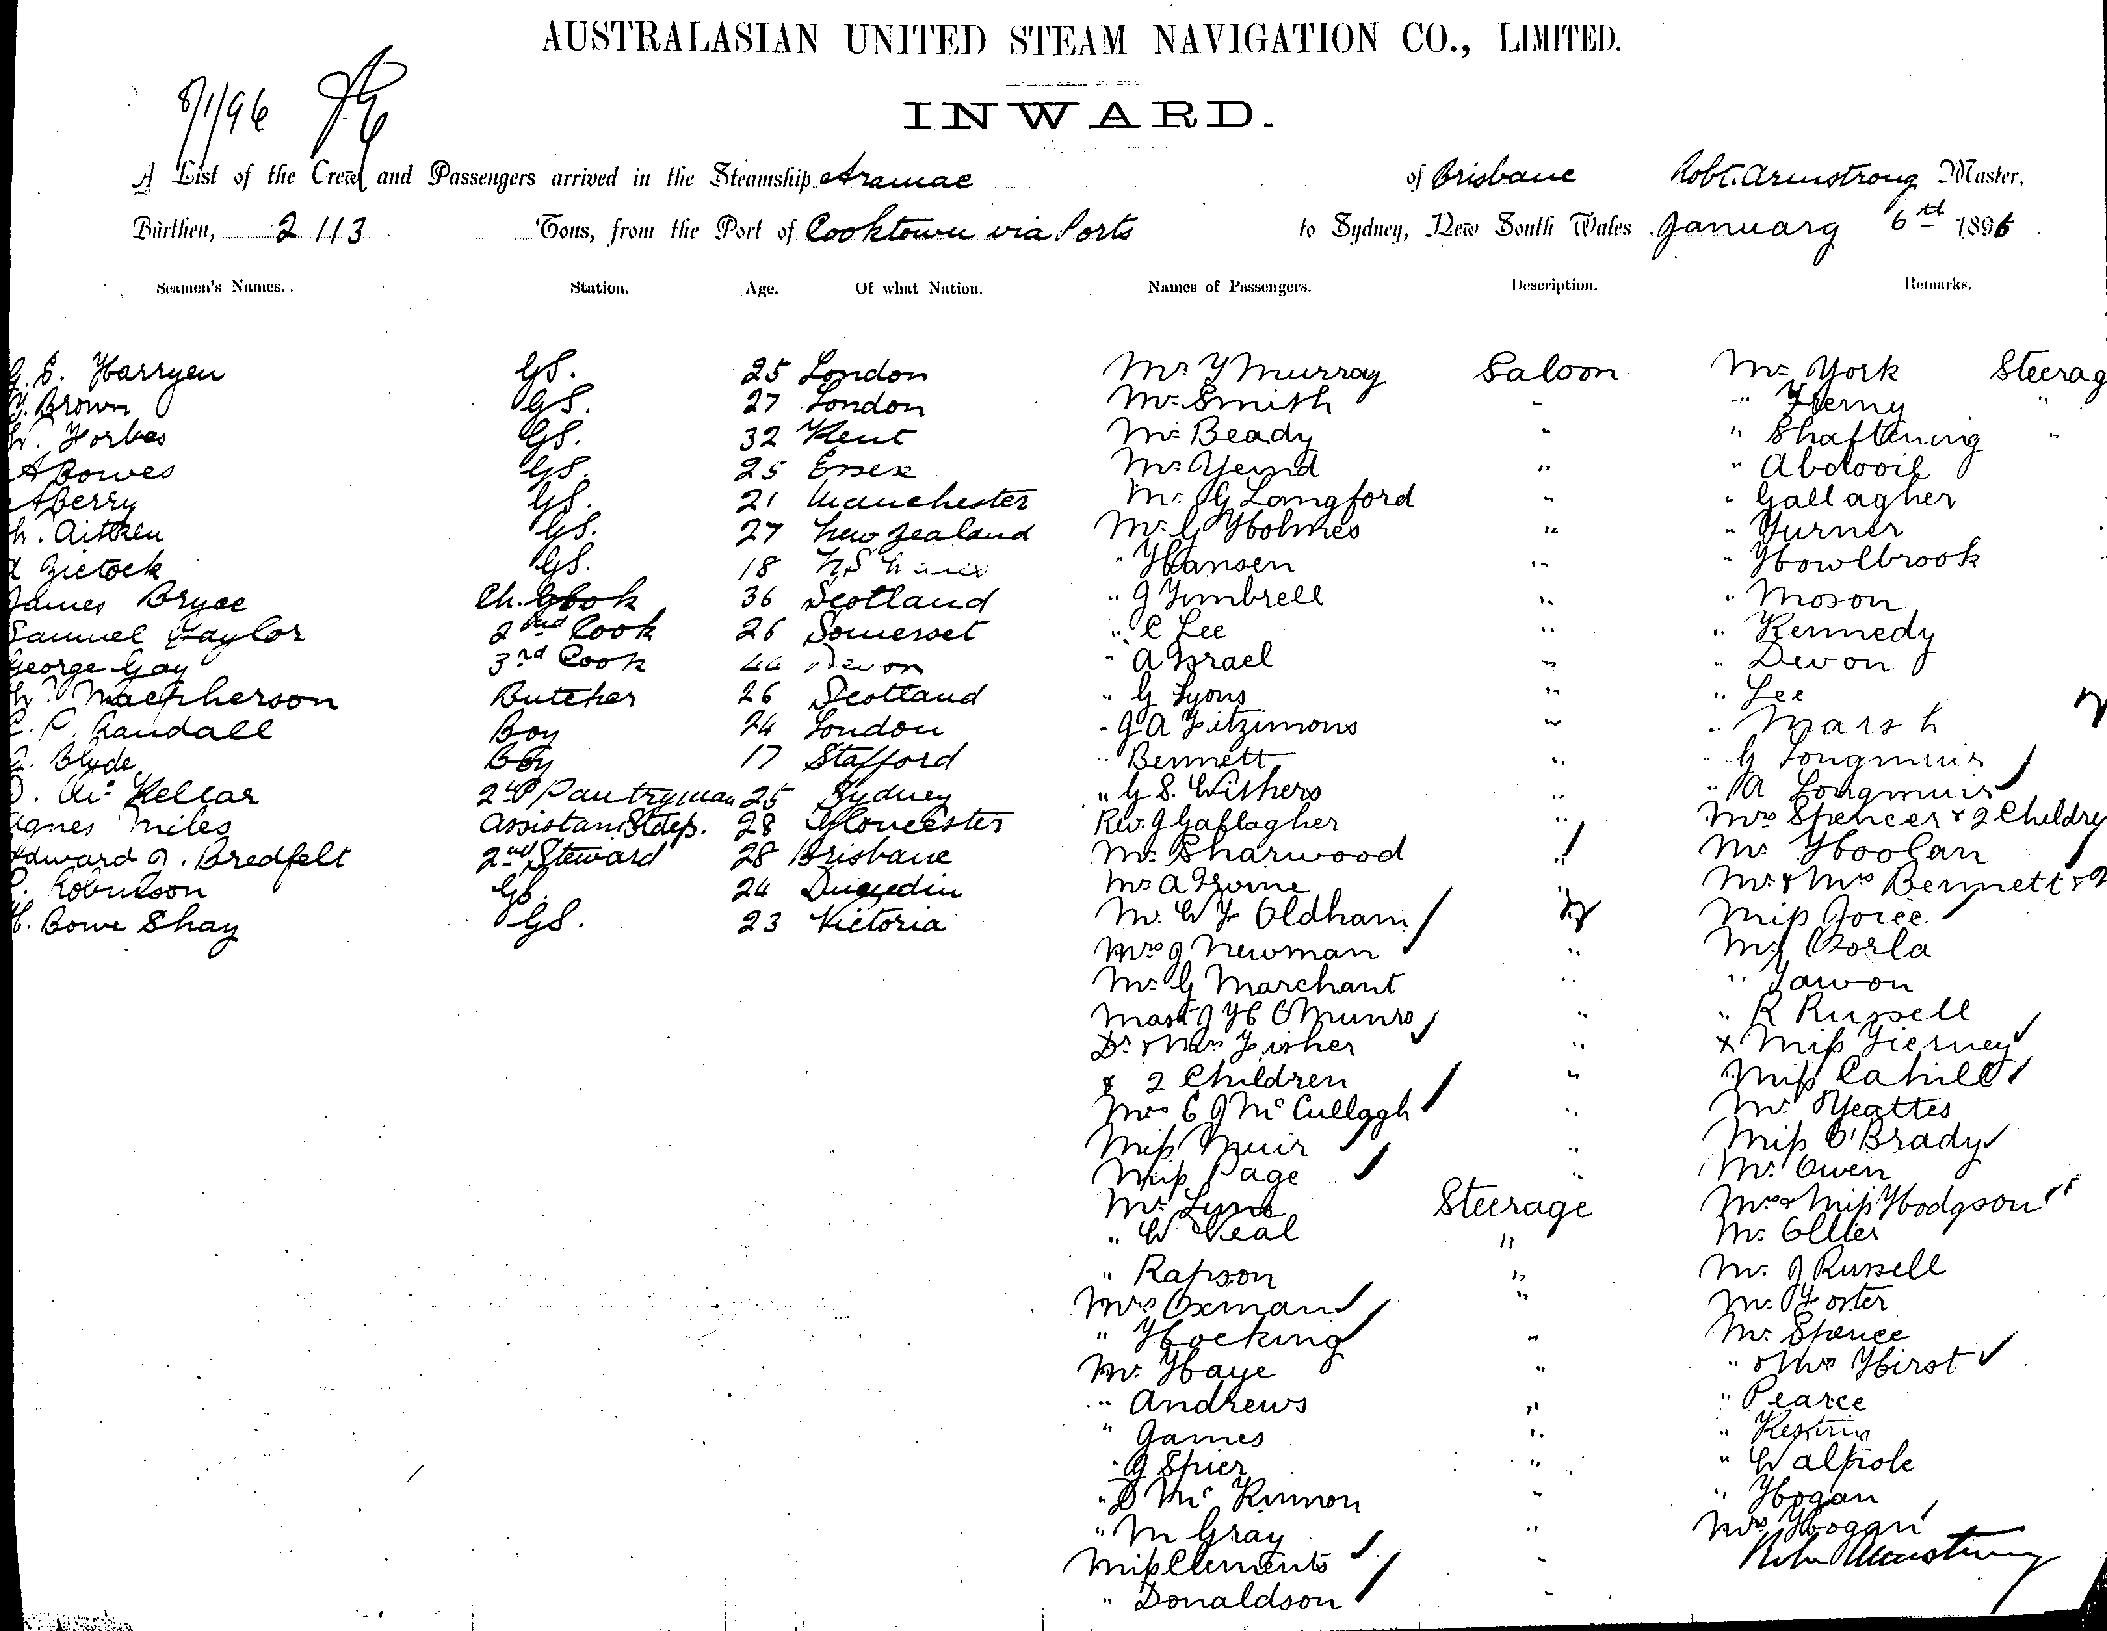 AUSTRALASIAN UNITED STEAM NAVIGATION CO., LIMITED.
8/1/96
INWARD.
A List of the Crew and Passengers arrived in the Steamship Aramac of Brisbane Robt. Armstrong Master,
Burthen, 2113 Tons, from the Port of Cooktown via Ports to Sydney, New South Wales January 6th 1896
Seamen's Names. Station. Age. Of what Nation. Names of Passengers. Description. Remarks.
G. S. Harryen GS. 25 London Mr Y Murray Saloon Mr York Steerag
Brown GS. 27 London Mr Smith " " "
Forbes GS. 32 Kent Mr Beady " " "
A Bowes GS. 25 Essex Mr " "
A Berry GS. 21 Manchester Mr G Langford " " Gallagher
Aitken GS. 27 New Zealand Mr G Holmes " " Turner
GS. 18 " Hansen " " Howlbrook
James Bryce Ch. Cook 36 Scotland " J Timbrell " " Moson
Samuel Taylor 2nd Cook 26 Somerset " C Lee " " Kennedy
George Gay 3rd Cook 44 Devon " A Israel " " Devon
Macpherson Butcher 26 Scotland " G Lyons " " Lee
C. P. Randall Boy 24 London " J A Fitzimons " " Marsh
Clyde Boy 17 Stafford " Bennett " " G Longmuir
Mc Kellar 2nd Pantryman 25 Sydney " G S. Withers " " A Longmuir
Agnes Miles Assistant Stdess. 28 Gloucester Rev. J Gallagher " Mrs Spencer & 2 Childre
Edward J. Bredfelt 2nd Steward 28 Brisbane Mrs Sharwood " Mr Hoolan
Robinson GS. 24 Dunedin Mr A Irvine " Mr & Mrs Bennett &
H. Bowe Shay GS. 23 Victoria Mr W F Oldham Miss Joice
Mrs J Newman " Mr
Mr G Marchant " "
Mast J H C Munro " " R Russell
Dr & Mrs Fisher " & Miss Tierney
& 2 Children " Miss Cahill
Mrs C J McCullagh " Mr Yeattes
Miss Muir " Miss O'Brady
Miss Page " Mr Owen
Mr Lyne Steerage Mrs & Miss Hodgson
" W Veal " Mr Ollier
" Rapson " Mr J Russell
Mrs Oxman " Mr Foster
" Hocking " Mr Spence
Mr Haye " " & Mrs Hirst
" Andrews " " Pearce
" James " "
" J Spier " " Walpole
" D McKinnon " " Hogan
" M Gray " Mrs Hogan
Miss Clements " Robt Armstrong
" Donaldson "